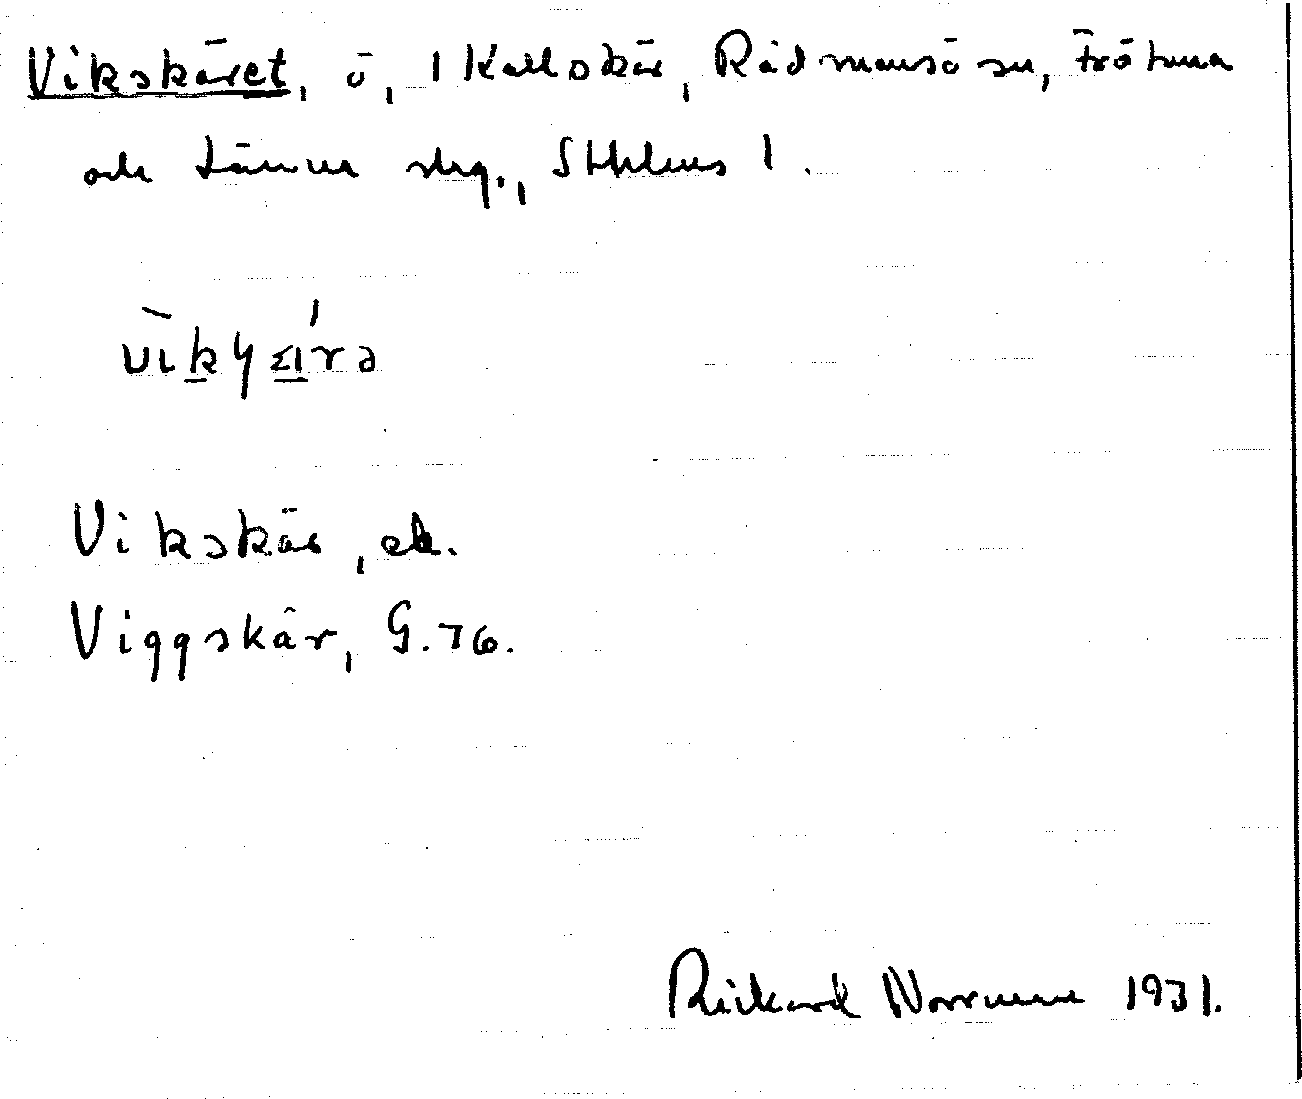 Vikskäret, ö, 1 Kallskär, Rådmansö sn, Frötuna
och Länna skg., Sthlms l.
Vikskär, ek.
Viggskär, G. 76.
Rickard 1931.